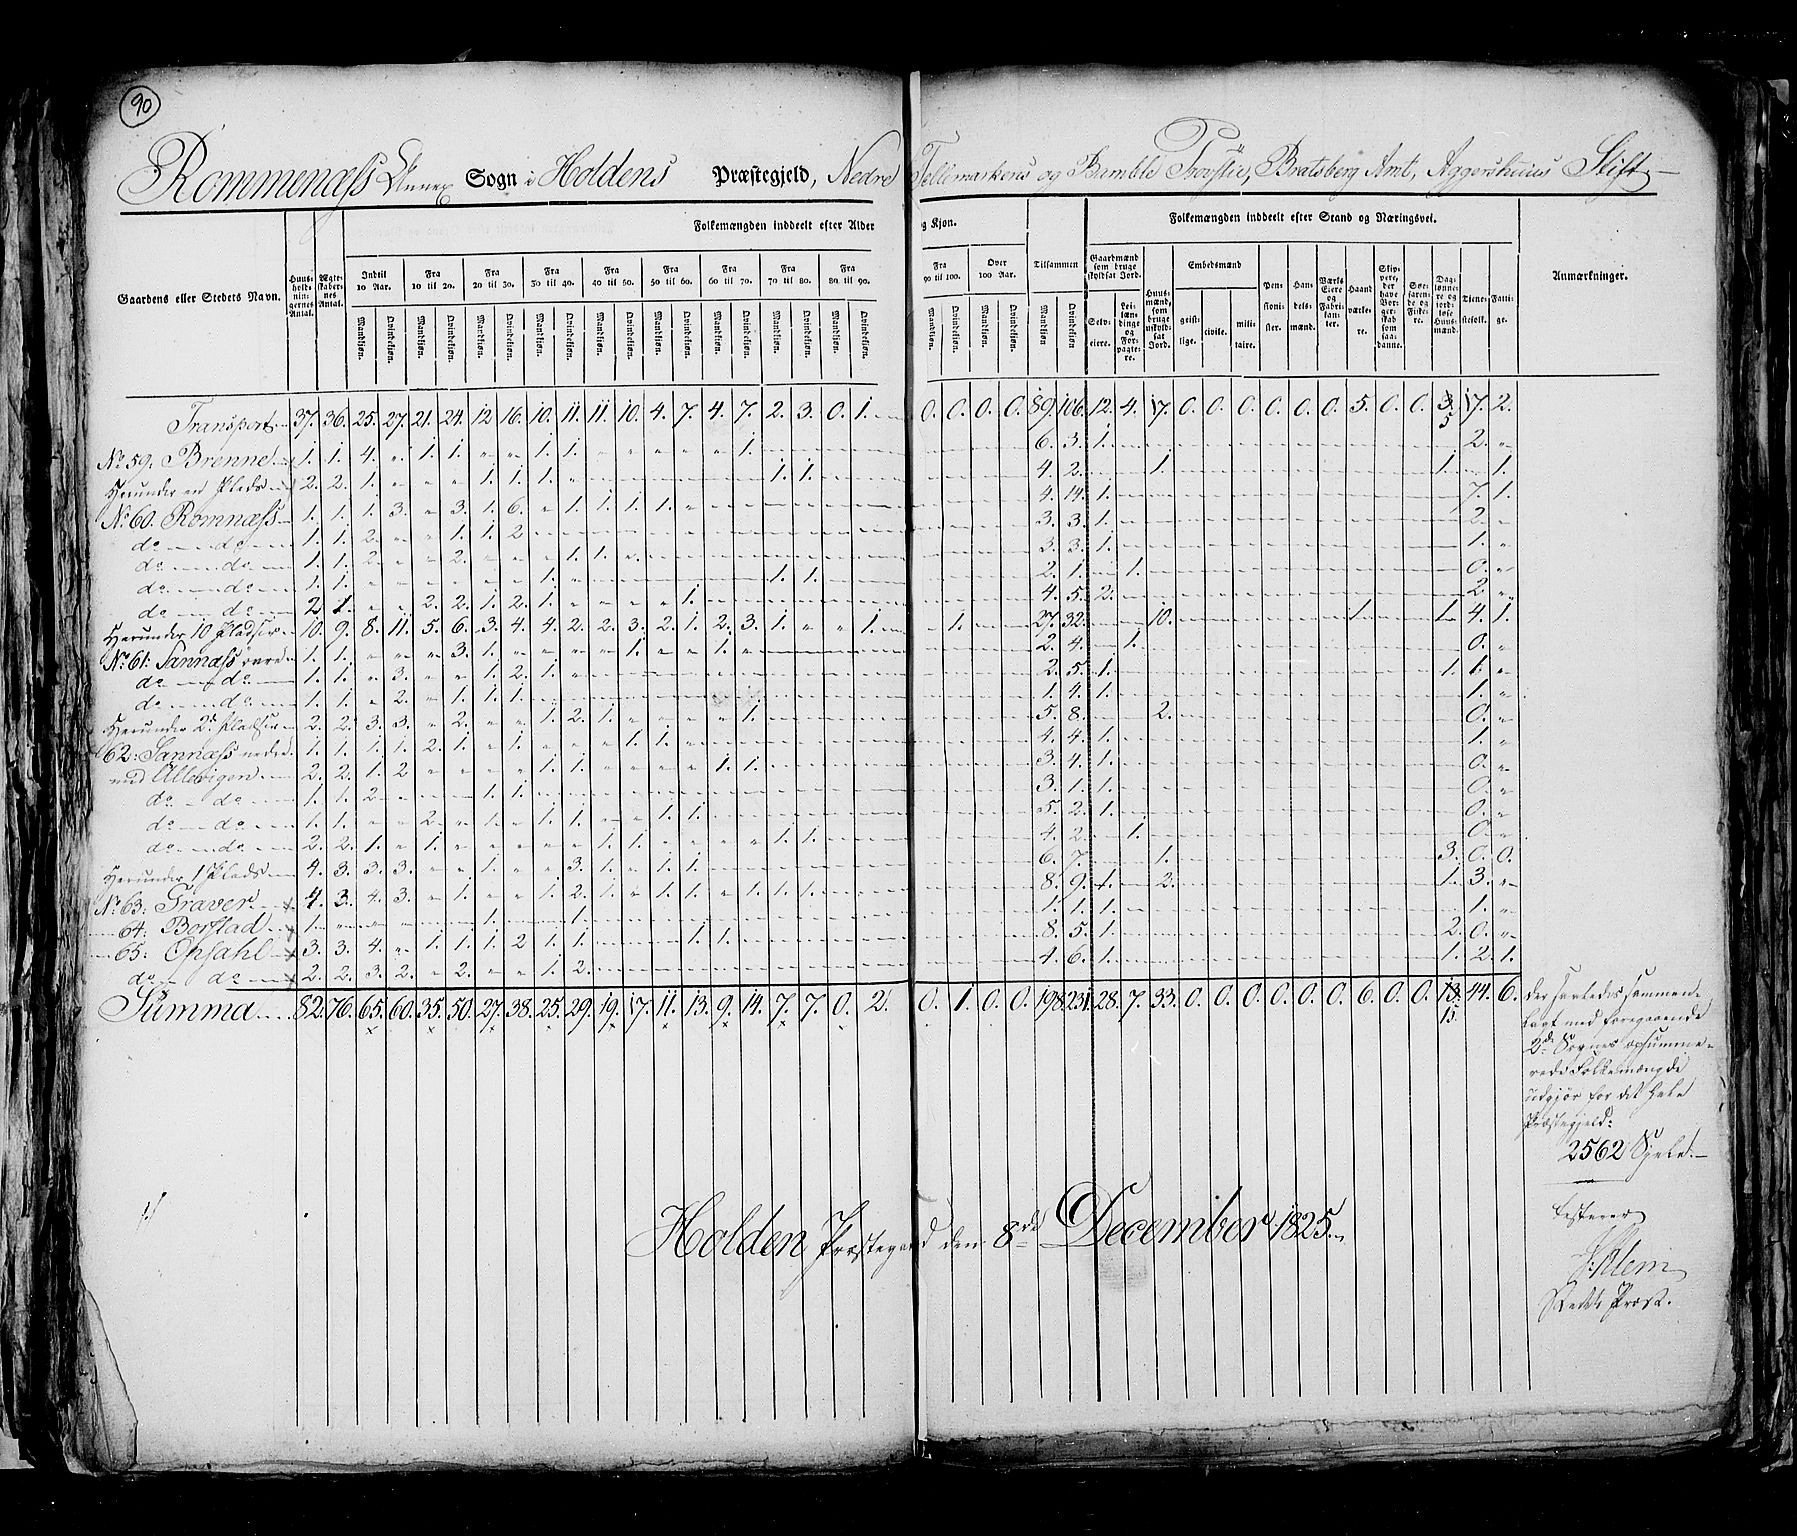 90
Rommenæss Annex Sogn i Holdens Præstegjeld, Nedre Tellemarkens og Bamble Provstie, Bratsberg Amt, Aggershuus Stift
Folkemængden inddeelt efter Alder og Kjøn. Folkemængden inddeelt efter Stand og Næringsvei.
Gaardens eller Stedets Navn. Huusholdningernes Antal. Ægteskabernes Antal. Indtil 10 Aar. Fra 10 til 20. Fra 20 til 30. Fra 30 til 40. Fra 40 til 50. Fra 50 til 60. Fra 60 til 70. Fra 70 til 80. Fra 80 til 90. Fra 90 til 100. Over 100 Aar. Tilsammen Gaardmænd som bruge skyldsat Jord. Huusmænd, som bruge uskyldsat Jord. Embedsmænd Pensionister. Handelsmænd. Værks Eiere og Fabrikanter. Haandværkere. Skippere, der have Borgerskab som saadanne. Søefarende og Fiskere. Daglønnere og jordløse Huusmænd. Tjenestefolk. Fattige. Anmærkninger.
Mandkjøn. Qvindekjøn. Mandkjøn. Qvindekjøn. Mandkjøn. Qvindekjøn. Mandkjøn. Qvindekjøn. Mandkjøn. Qvindekjøn. Mandkjøn. Qvindekjøn. Mandkjøn. Qvindekjøn. Mandkjøn. Qvindekjøn. Mandkjøn. Qvindekjøn. Mandkjøn. Qvindekjøn. Mandkjøn. Qvindekjøn. Mandkjøn Qvindekjøn Selveiere. Leilændinge og Forpagtere. geistlige. civile. militaire.
Transport 37. 36. 25. 27. 21. 24. 12 16. 10. 11. 11. 10. 4. 7. 4. 7. 2. 3. 0. 1. 0. 0. 0. 0. 89. 106. 12. 4. 17. 0. 0. 0. 0. 0. 0. 5. 0. 0. 3. 5 17. 2.
No 59. Brenne 1. 1. 4. „ 1. 1. „ „ 1. 1. „ „ „ „ „ 1. 6. 3. 1. 2. „
Herunder en Plads 2. 2. 1. „ „ „ 1. 1. 1. „ 1. 1. 4. 2. 1. 1. 1.
No 60. Romnæss 1. 1. 1. 3. „ 3. 1. 6. „ 1. 1. 1. 1. 4. 14. 1. 7. 1.
do do 1. 1. 2. „ „ 1. 1. 2 3. 3. 1. 2. „
do do 1. 1. 2. „ „ 2. „ „ „ 1. 1. 3. 3. 1. 1. „
do do 1. 1. „ „ „ „ „ „ 1. 1. 1. 2. 1. 1. 0. „
do do 2. 1. „ „ 2. 2. 1. 2. 1. „ „ „ „ 1. 4. 5. 2. 2. „
Herunder 10 Pladser 10. 9. 8. 11. 5. 6. 3. 4. 4. 2. 2. 3. 2. 1. 2. 3. 1. „ „ 1. 1. 27. 32. 10. 1. 1. 4. 1.
No 61: Sannæss øvre 1. 1. „ „ „ 3. 1. „ „ „ „ 1. „ „ 1. 2. 4. 1. 0. „
do do 1. 1. „ 3. „ „ 1. 2. 1. 2. 5. 1. 1. 1. „
do do 1. 1. „ 2. „ 1. 1. 1. 1. 4. 1. 1. „
Herunder 2de Pladser 2. 2. 3. 3. „ 2. „ „ 1. 2. 1. „ „ „ „ 1. 5. 8. 2. 0. „
62: Sannæss nedre 1. 1. 1. 1. 2. 1. „ 1. „ „ „ 1. 1. 4. 4. 1. 1. „
med Allerigen 2. 2. 1. 2 „ „ „ „ 1. 1. „ „ „ „ 1. 1. 3. 4. 1. 0. „
do do 1. 1. 2 1. 1. 3. 1. 1. 0. „
do do 1. 1. „ „ 2. „ 1. „ 1. 1. „ „ 1. 1. 5. 2. 1. 0. „
do do 2. 2. 1. „ 1. „ „ „ „ „ 1. 1. „ „ „ „ 1. 1. 4. 2. 1. 0. „
Herunder 1 Plads 4. 3. 3. 3. „ „ 1. „ „ 3. 1. „ 1. 1. 6. 7. 1. 3. 0. 0.
No 63: Graver 4. 3. 4. 3. „ 1. „ „ 1. 2. 1. „ 1. 1. „ 1. 1. 1. 8. 9. 1. 2. 1. 3. „
64: Borstad 1. 1. 1. 1. 1. 1. 1. „
65: Opsahl 3. 3. 4. „ 1. 1. 1. 2 1. 1. 1. 1. 8. 5. 1. 2. 0. „
do do 2. 2. 3. 2. „ 2. „ „ 1. 2. 4. 6. 1. 1. 2. 1.
Summa 82. 76. 65. 60. 35. 50. 27. 38. 25. 29. 19. 17. 11. 13. 9. 14. 7. 7. 0. 2. 0. 1. 0. 0. 198. 231. 28. 7. 33. 0. 0. 0. 0. 0. 0. 6. 0. 0. 13. 15. 44. 6.
der saaledes sammen-
lagt med foregaaende
2de Sognes opsumme-
rede Folkemængde
udgjør for det hele
Præstegjeld:
2562 Sjele.
Holden Præstegaard den 8de December 1825.
testerer
Præst.